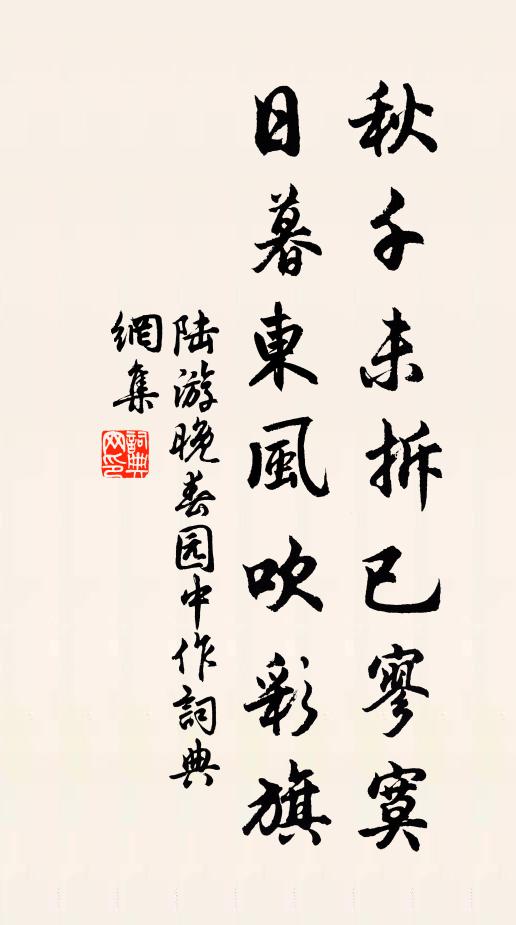 秋千未拆已寥寞
日暮東風吹彩旗
陆游晚春园中作詞典
網集
詞典网印